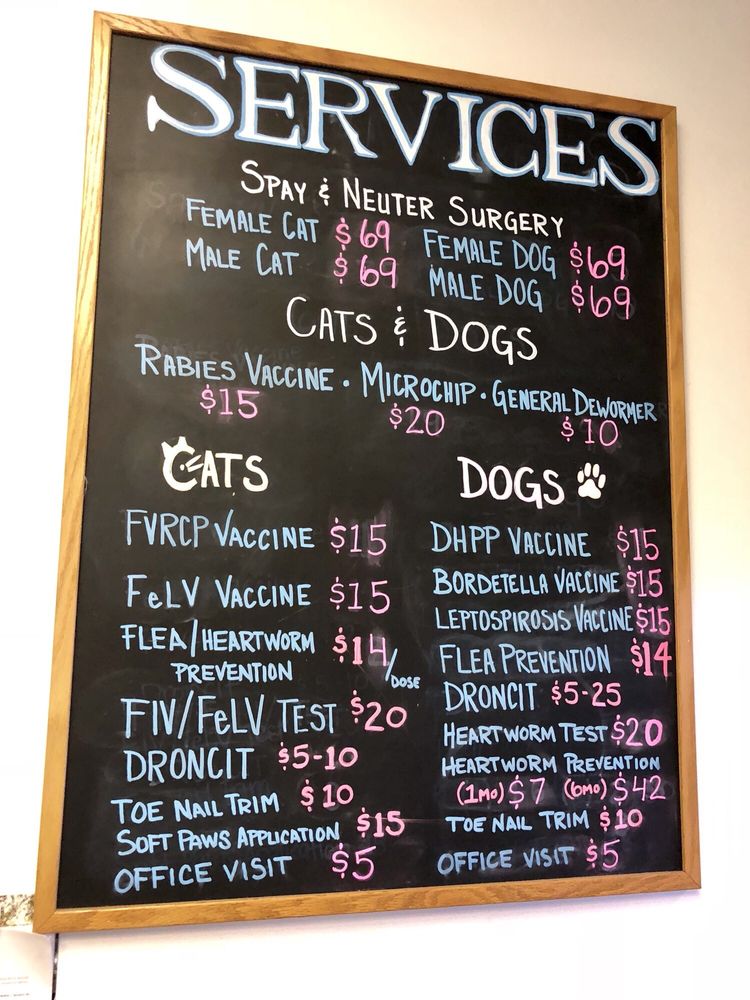 SERVICES
SPAY & NEUTER SURGERY
FEMALE CAT $69
MALE CAT $69
FEMALE DOG $69
MALE DOG $69
CATS & DOGS
RABIES VACCINE • MICROCHIP • GENERAL DEWORMER
$15 $20 $10
CATS
FVRCP VACCINE $15
FeLV VACCINE $15
FLEA/HEARTWORM PREVENTION $14/DOSE
FIV/FeLV TEST $20
DRONCIT $5-10
TOE NAIL TRIM $10
SOFT PAWS APPLICATION $15
OFFICE VISIT $5
DOGS
DHPP VACCINE $15
BORDETELLA VACCINE $15
LEPTOSPIROSIS VACCINE $15
FLEA PREVENTION $14
DRONCIT $5-25
HEARTWORM TEST $20
HEARTWORM PREVENTION
(1MO) $7 (6MO) $42
TOE NAIL TRIM $10
OFFICE VISIT $5